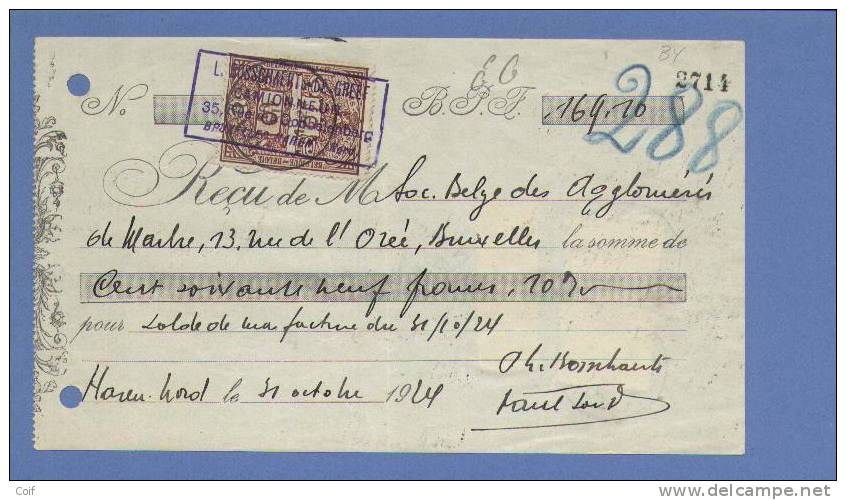 EC
BY
2714
No
B.P.F. 169,10
288
35, Rue
Reçu de M Soc. Belge des Agglomérés
de Marbre, 13, rue de l'Orée, Bruxelles la somme de
Cent soixante neuf francs, 10
pour solde de ma facture du 31/10/24
Haren-Nord le 31 octobre 1924
Coif
delcampe.net